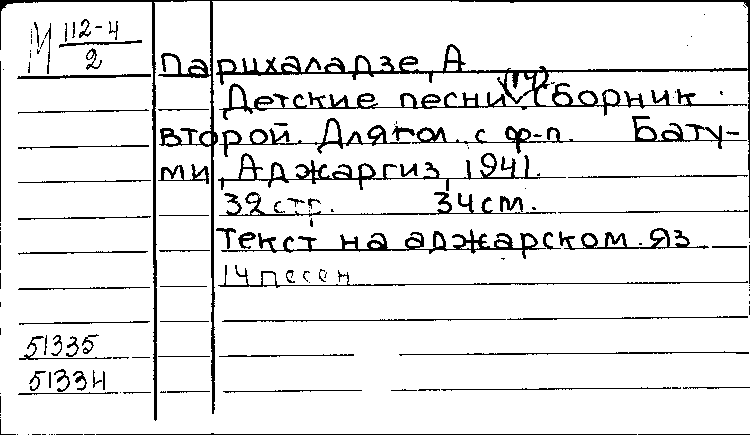 М 112-4
2
Парихаладзе, А
Детские песни. (14) Сборник
второй. Для гол. с ф-п. Бату-
ми, Аджаргиз, 1941.
32 стр. 34 см.
Текст на аджарском яз.
14 песен
51335
51334